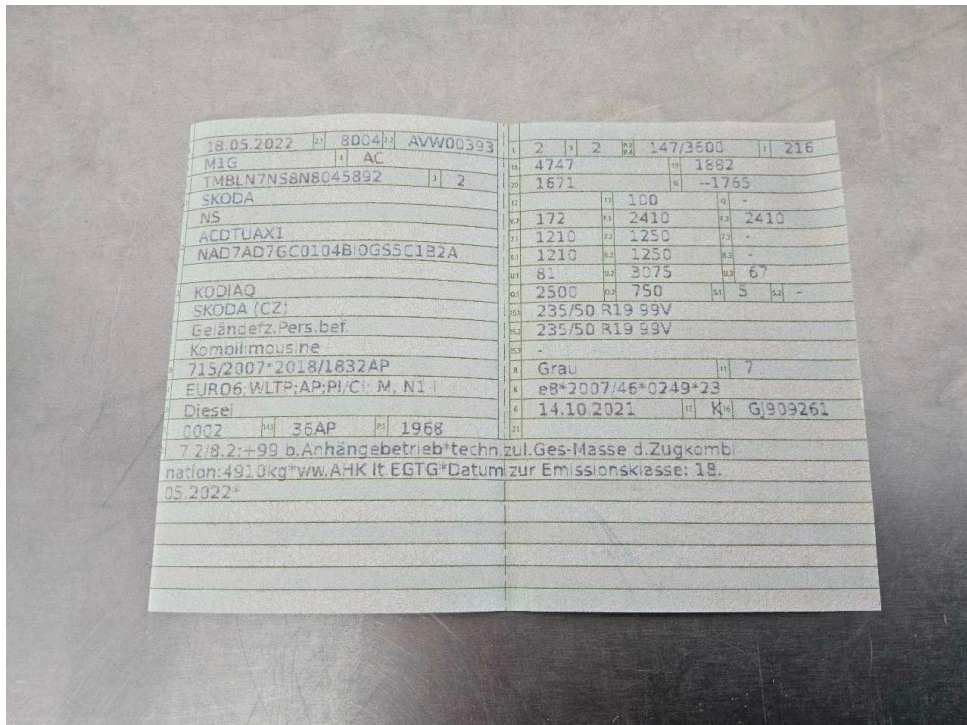 18.05.2022 2.1 8004 2.2 AVW00393
M1G 4 AC
TMBLN7NS8N8045892 3 2
SKODA
NS
ACDTUAX1
NAD7AD7GC0104BI0GS5C1B2A
KODIAQ
SKODA (CZ)
Geländefz.Pers.bef.
Kombilimousine
715/2007*2018/1832AP
EURO6;WLTP;AP;PI/CI; M, N1 I
Diesel
0002 14.1 36AP P.1 1968
L 2 9 2 P.2 P.4 147/3600 T 216
18 4747 19 1882
20 1671 G --1765
12 13 100 Q -
V.7 172 F.1 2410 F.2 2410
7.1 1210 7.2 1250 7.3 -
8.1 1210 8.2 1250 8.3 -
U.1 81 U.2 3075 U.3 67
O.1 2500 O.2 750 S.1 5 S.2 -
15.1 235/50 R19 99V
15.2 235/50 R19 99V
15.3 -
R Grau 11 7
K e8*2007/46*0249*23
6 14.10.2021 17 K 16 GJ909261
21
7.2/8.2:+99 b.Anhängebetrieb*techn.zul.Ges-Masse d.Zugkombi
nation:4910kg*ww.AHK lt.EGTG*Datum zur Emissionsklasse: 18.
05.2022*